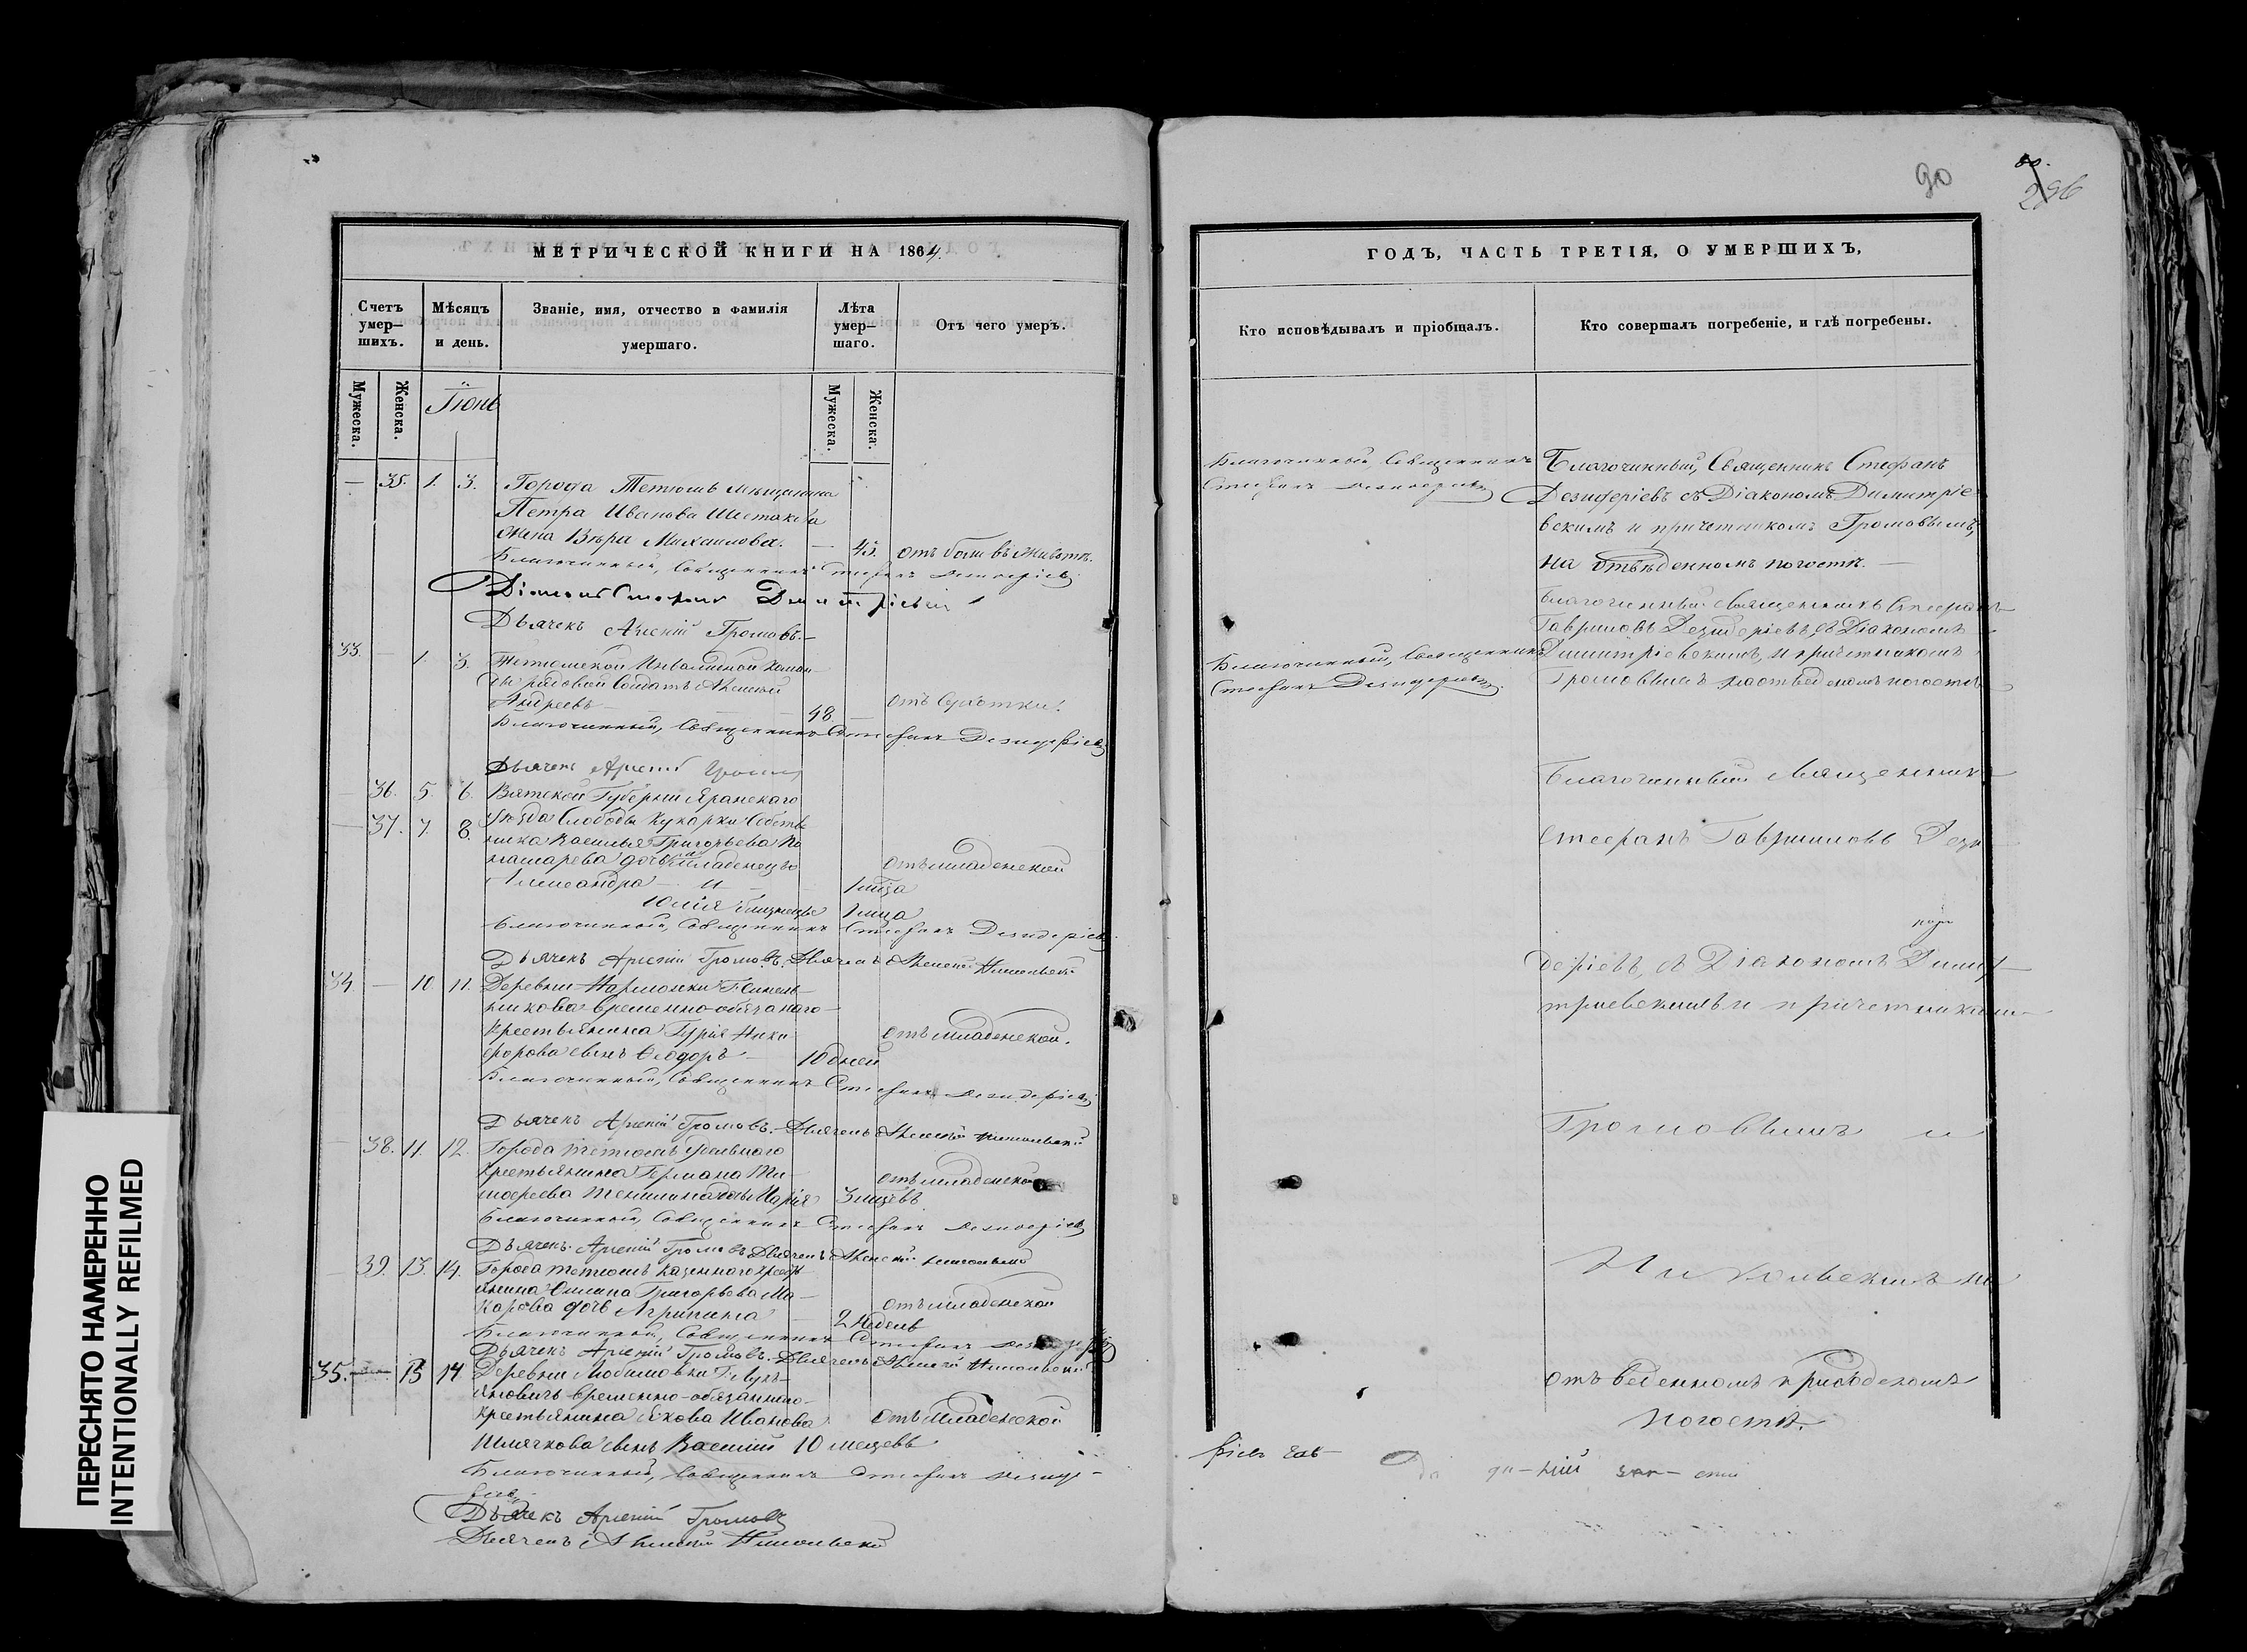 90
296
МЕТРИЧЕСКОЙ КНИГИ НА 1864.
Счетъ умер—шихъ.
Мѣсяцъ и день.
Званіе, имя, отчество и фамилія умершаго.
Лѣта умер—шаго.
Отъ чего умеръ.
Мужеска.
Женска.
Іюнь
Мужеска.
Женска.
— 35. 1. 3. Города Тетюшъ мѣщанина
Петра Иванова Шестакова
жена Вѣра Михаилова. — 45. отъ боли въ животѣ.
Благочинный, Священникъ Стефанъ Дезидеріевъ
Діаконъ Стефанъ Димитріевскій
Дьячекъ Арсеній Громовъ.—
33. — 1. 3. Тетюшской Инвалидной Коман—
ды рядовой Солдатъ Алексей
Андреевъ — 48. — отъ Сухотки.
Благочинный, Священникъ Стефанъ Дезидеріевъ
Дьячекъ Арсеній Громовъ
— 36. 5. 6. Вятской Губерніи Яранскаго
— 37. 7. 8. уѣзда Слободы Кукарки
Василья Григорьева
дочь младенецъ отъ младенской
Александра — и — 1 мѣца
Юлія близнецы 1 мѣца
Благочинный, Священникъ Стефанъ Дезидеріевъ
Дьячекъ Арсеній Громовъ. Дьячекъ Алексей Никольскій
34. — 10. 11. Деревни
временно-обязаннаго—
Крестьянина Гурія Ники—
форова сынъ Ѳеодоръ — 10 дней отъ младенской.
Благочинный, Священникъ Стефанъ Дезидеріевъ
Дьячекъ Арсеній Громовъ.— Дьячекъ Алексей Никольскій
— 38. 11. 12. Города Тетюшъ удѣльнаго
Крестьянина Германа Ти— отъ младенской
мофеева дочь Марія 3 мѣцевъ
Благочинный, Священникъ Стефанъ Дезидеріевъ
Дьячекъ Арсеній Громовъ Дьячекъ Алексей Никольскій
— 39. 13. 14. Города Тетюшъ казеннаго кресть
янина Григорьева Ма— отъ младенской
карова дочь Агрипина — 2 Недель
Благочинный, Священникъ Стефанъ Дезидеріевъ
Дьячекъ Арсеній Громовъ. Дьячекъ Алексей Никольскій
35. — 13 14 Деревни Любимовки Г. Лукь—
яновичъ временно-обязаннаго—
Крестьянина Якова Иванова отъ младенской
сынъ Василій 10 месцевъ
Благочинный, Священникъ Стефанъ Дезиде—
ріевъ
Дьячекъ Арсеній Громовъ
Дьячекъ Алексей Никольскій
ГОДЪ, ЧАСТЬ ТРЕТІЯ, О УМЕРШИХЪ,
Кто исповѣдывалъ и пріобщалъ.
Кто совершалъ погребеніе, и гдѣ погребены.
Благочинный Священникъ
Стефанъ Дезидеріевъ
Благочинный, Священникъ Стефанъ
Дезидеріевъ съ Діакономъ Димитріе—
вскимъ и причетникомъ Громовымъ,
на отвѣденномъ погостѣ.—
Благочинный, Священникъ
Стефанъ Дезидеріевъ.
Благочинный Священникъ Стефанъ
Гавриловъ Дезидеріевъ съ Діакономъ
Димитріевскимъ, и причетникомъ
Громовымъ на отведеномъ погостѣ
Благочинный Священникъ
Стефанъ Гавриловъ Дези
деріевъ, съ Діакономъ Дими—
тріевскимъ и причетниками
Громовымъ и
Никольскимъ на
отъведенномъ приходскомъ
погостѣ.
ПЕРЕСНЯТО НАМЕРЕННО
INTENTIONALLY REFILMED